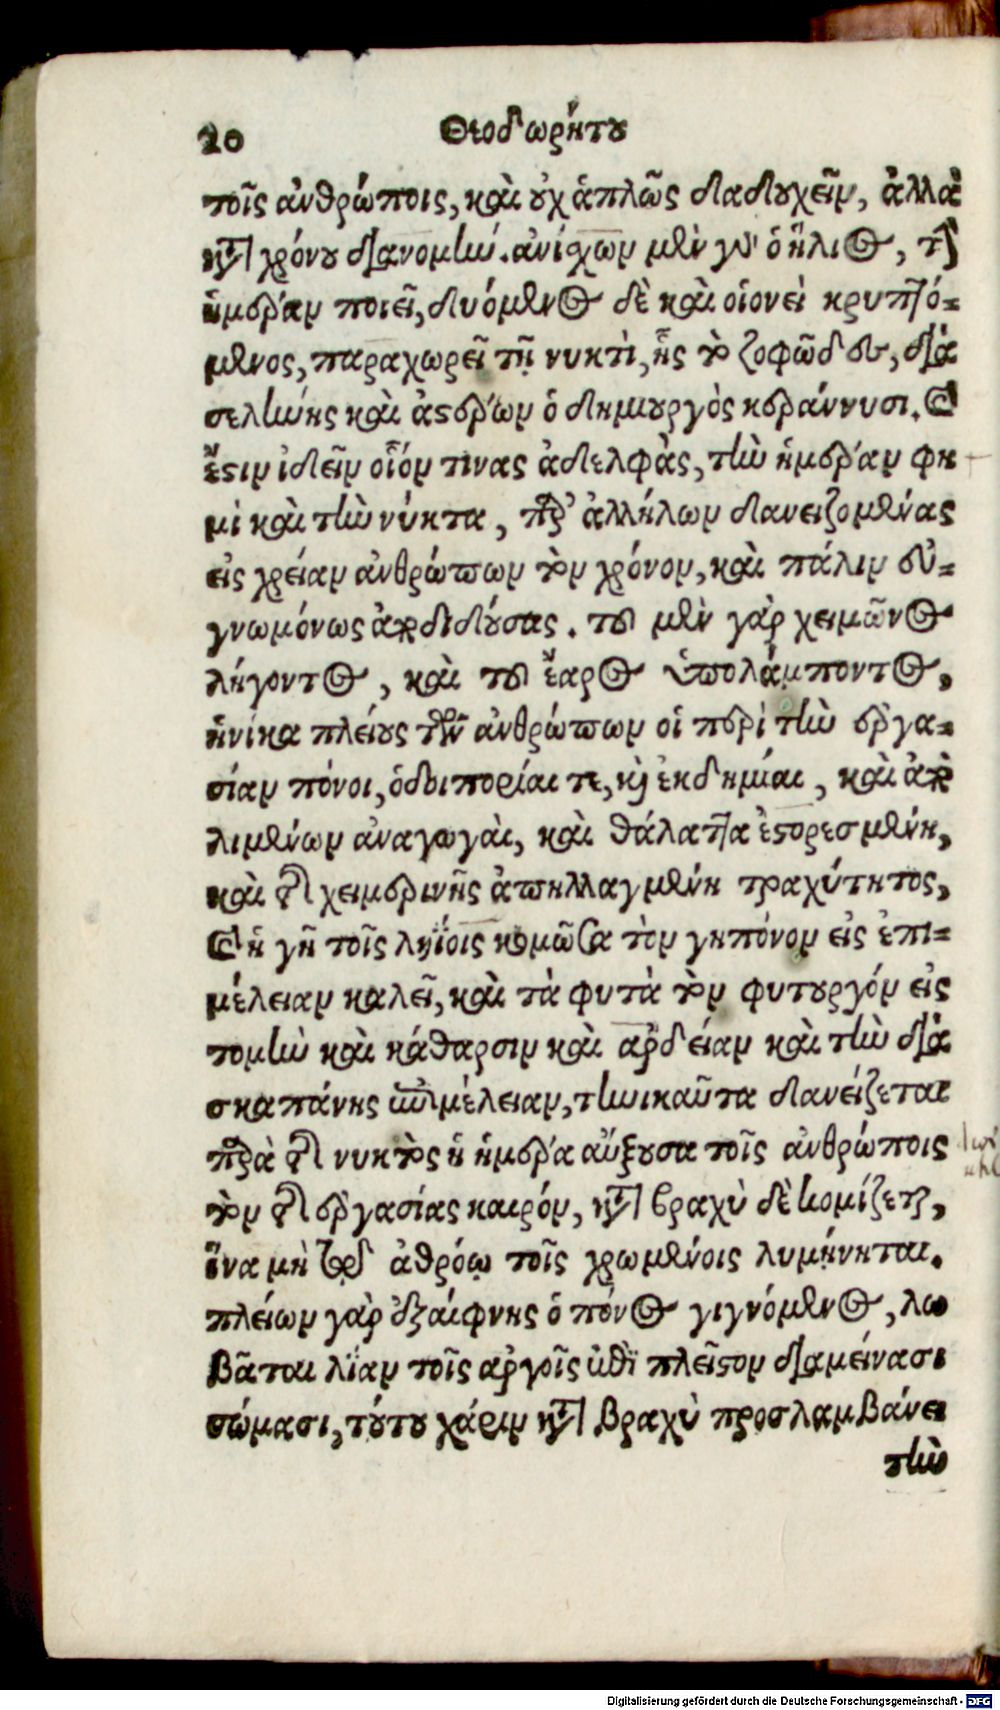 20 Θεοδωρήτου
τοῖς ἀνθρώποις, καὶ οὐχ ἁπλῶς δᾳδουχεῖν, ἀλλὰ
κατὰ χρόνου διανομήν. ἀνίσχων μὲν γὰρ ὁ ἥλιος, τὴν
ἡμέραν ποιεῖ, δυόμενος δὲ καὶ οἱονεὶ κρυπτό-
μενος, παραχωρεῖ τῇ νυκτὶ, ἧς τὸ ζοφῶδες, διὰ
σελήνης καὶ ἀστέρων ὁ δημιουργὸς κεράννυσι. καὶ
ἔστιν ἰδεῖν οἷόν τινας ἀδελφὰς, τὴν ἡμέραν φη
μὶ καὶ τὴν νύκτα, παρ' ἀλλήλων δανειζομένας
εἰς χρείαν ἀνθρώπων τὸν χρόνον, καὶ πάλιν εὐ-
γνωμόνως ἀποδιδούσας. τοῦ μὲν γὰρ χειμῶνος
λήγοντος, καὶ τοῦ ἔαρος ὑπολάμποντος,
ἡνίκα πλείους τῶν ἀνθρώπων οἱ περὶ τὴν ἐργα-
σίαν πόνοι, ὁδοιπορίαι τε, καὶ ἐκδημίαι, καὶ ἀπὸ
λιμένων ἀναγωγαὶ, καὶ θάλαττα ἐστορεσμένη,
καὶ τῆς χειμερινῆς ἀπηλλαγμένη τραχύτητος,
καὶ ἡ γῆ τοῖς ληΐοις κομῶσα τὸν γηπόνον εἰς ἐπι-
μέλειαν καλεῖ, καὶ τὰ φυτὰ τὸν φυτουργόν εἰς
τομὴν καὶ κάθαρσιν καὶ ἀρδείαν καὶ τὴν διὰ
σκαπάνης ἐπιμέλειαν, τηνικαῦτα δανείζεται
παρὰ τῆς νυκτὸς ἡ ἡμέρα αὔξουσα τοῖς ἀνθρώποις
τὸν τῆς ἐργασίας καιρόν, κατὰ βραχὺ δὲ κομίζεται,
ἵνα μὴ τῷ ἀθρόῳ τοῖς χρωμένοις λυμήνηται.
πλείων γὰρ ἐξαίφνης ὁ πόνος γιγνόμενος, λω
βᾶται λίαν τοῖς ἀργοῖς ἐπὶ πλεῖστον διαμείνασι
σώμασι, τούτου χάριν κατὰ βραχὺ προσλαμβάνει
τὴν
Digitalisierung gefördert durch die Deutsche Forschungsgemeinschaft - DFG